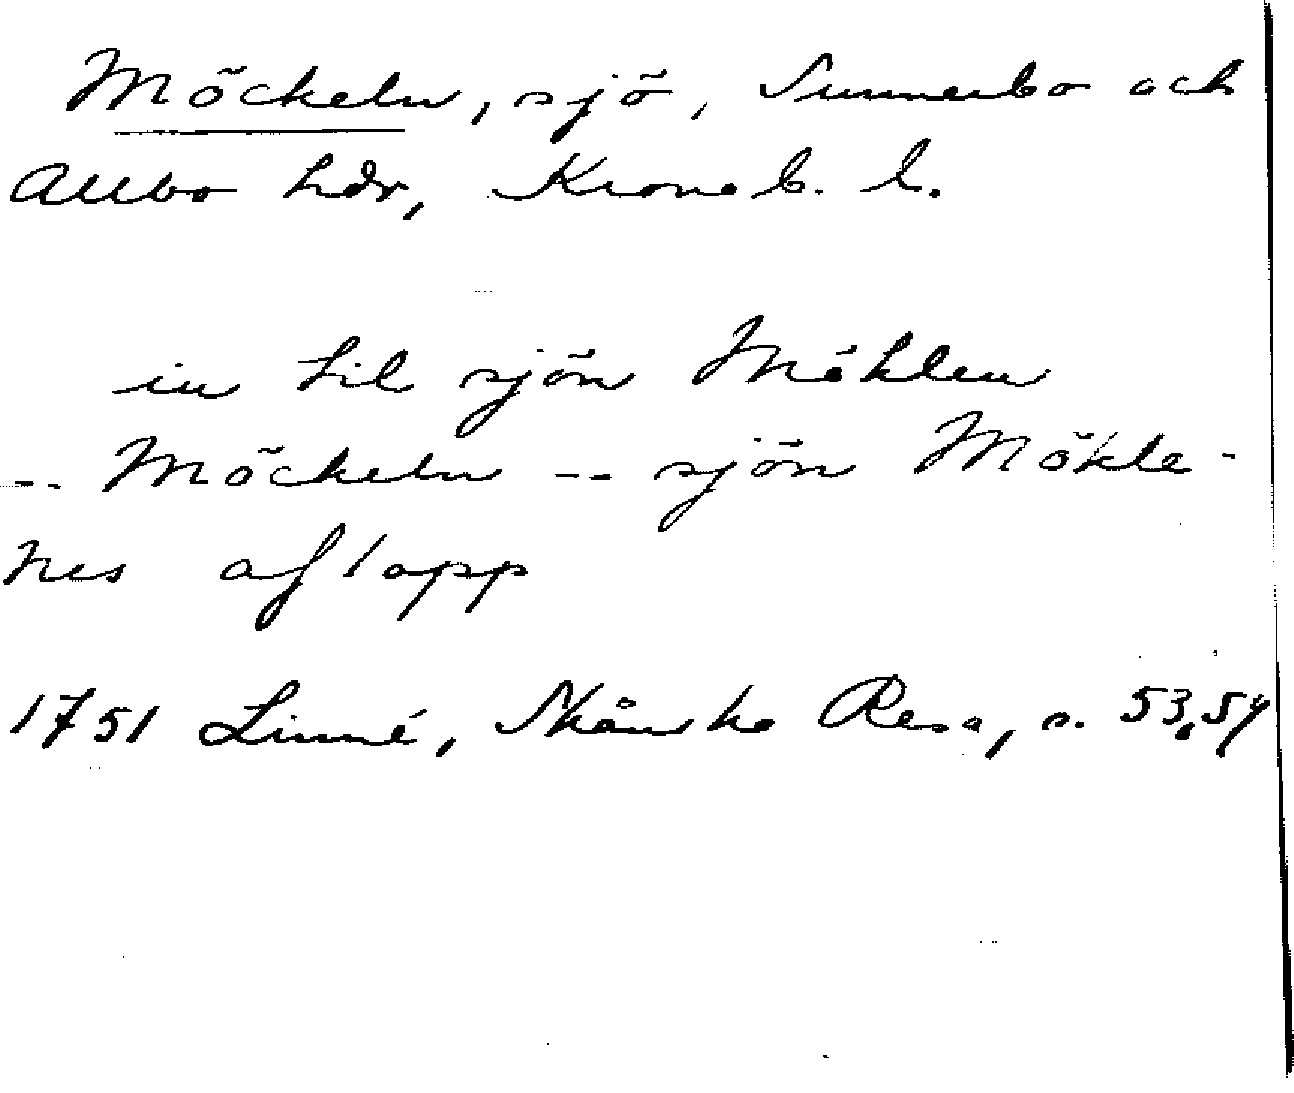 Möckeln, sjö, Sunnerbo och
Allbo hdr, Kronob. l.
in til sjön Möklen
-- Möckeln -- sjön Mökle-
nes aflopp
1751 Linné, Skånska Resa, s. 53,54